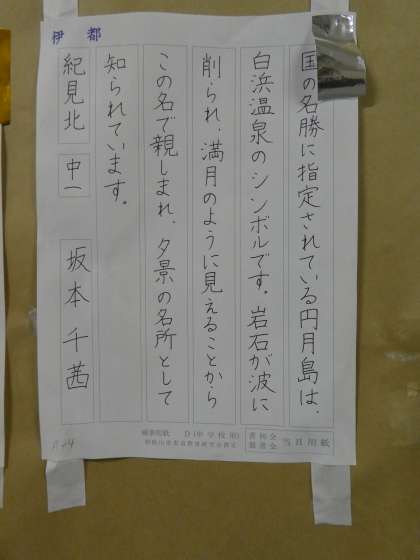 国の名勝に指定されている円月島は、
白浜温泉のシンボルです。岩石が波に
削られ、満月のように見えることから
この名で親しまれ、夕景の名所として
知られています。
伊都
紀見北 中一 坂本千茜